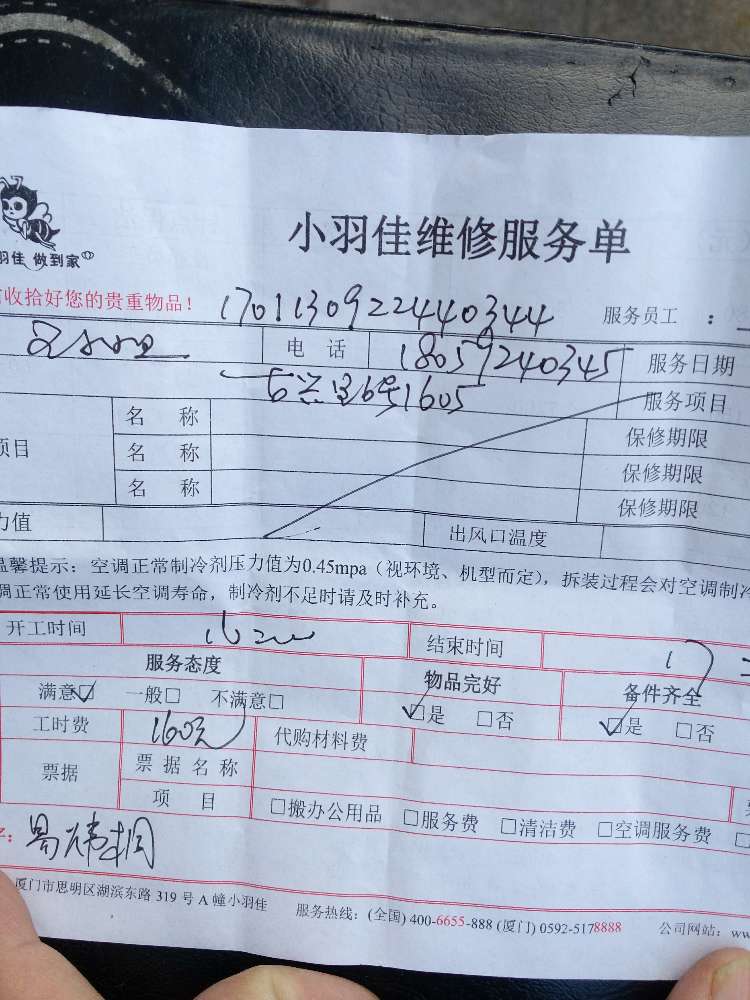 小羽佳维修服务单
羽佳 做到家
收拾好您的贵重物品！ 1701130922440344 服务员工 ：
电 话 18059240345 服务日期
兴里6号1605 服务项目
项目 名 称 保修期限
名 称 保修期限
名 称 保修期限
力值 出风口温度
温馨提示：空调正常制冷剂压力值为0.45mpa（视环境、机型而定），拆装过程会对空调制冷
调正常使用延长空调寿命，制冷剂不足时请及时补充。
开工时间 结束时间
服务态度 物品完好 备件齐全
满意☑ 一般□ 不满意□ ☑是 □否 ☑是 □否
工时费 160元 代购材料费
票据 票 据 名 称
项 目 □搬办公用品 □服务费 □清洁费 □空调服务费 □
厦门市思明区湖滨东路 319 号 A 幢小羽佳 服务热线：(全国) 400-6655-888 (厦门) 0592-5178888 公司网站：ww